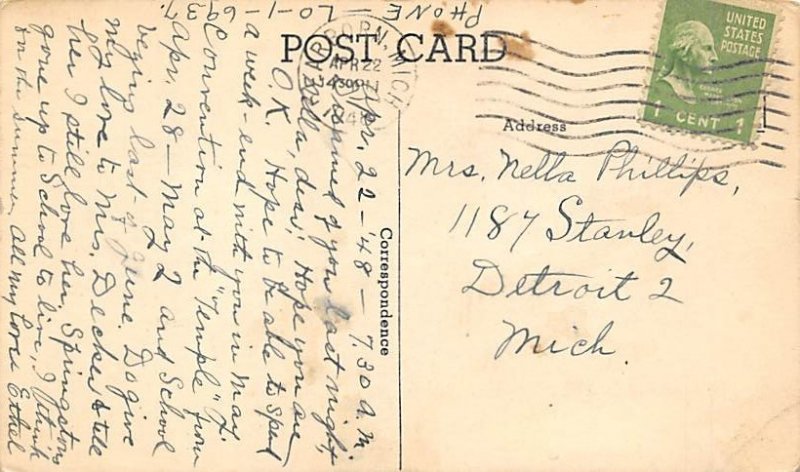 PHONE LO-1-6937.
POST CARD
DEARBORN, MICH.
APR 22
730 AM
1948
UNITED
STATES
POSTAGE
1 CENT 1
Address
Correspondence
Mrs. Nella Phillips,
1187 Stanley,
Detroit 2
Mich.
Apr. 22-'48- 7.30 a.m.
Dreamed of you last night,
Nella, dear. Hope you are
O.K. Hope to be able to spend
a week-end with you in May
Convention at the "Temple" from
Apr. 28 - May 2 and School
last of June. Do give
my love to Mrs. Decker & tell
her I still love her. Springstons
gone up to School to live, I think
in the summer. All my love Ethel